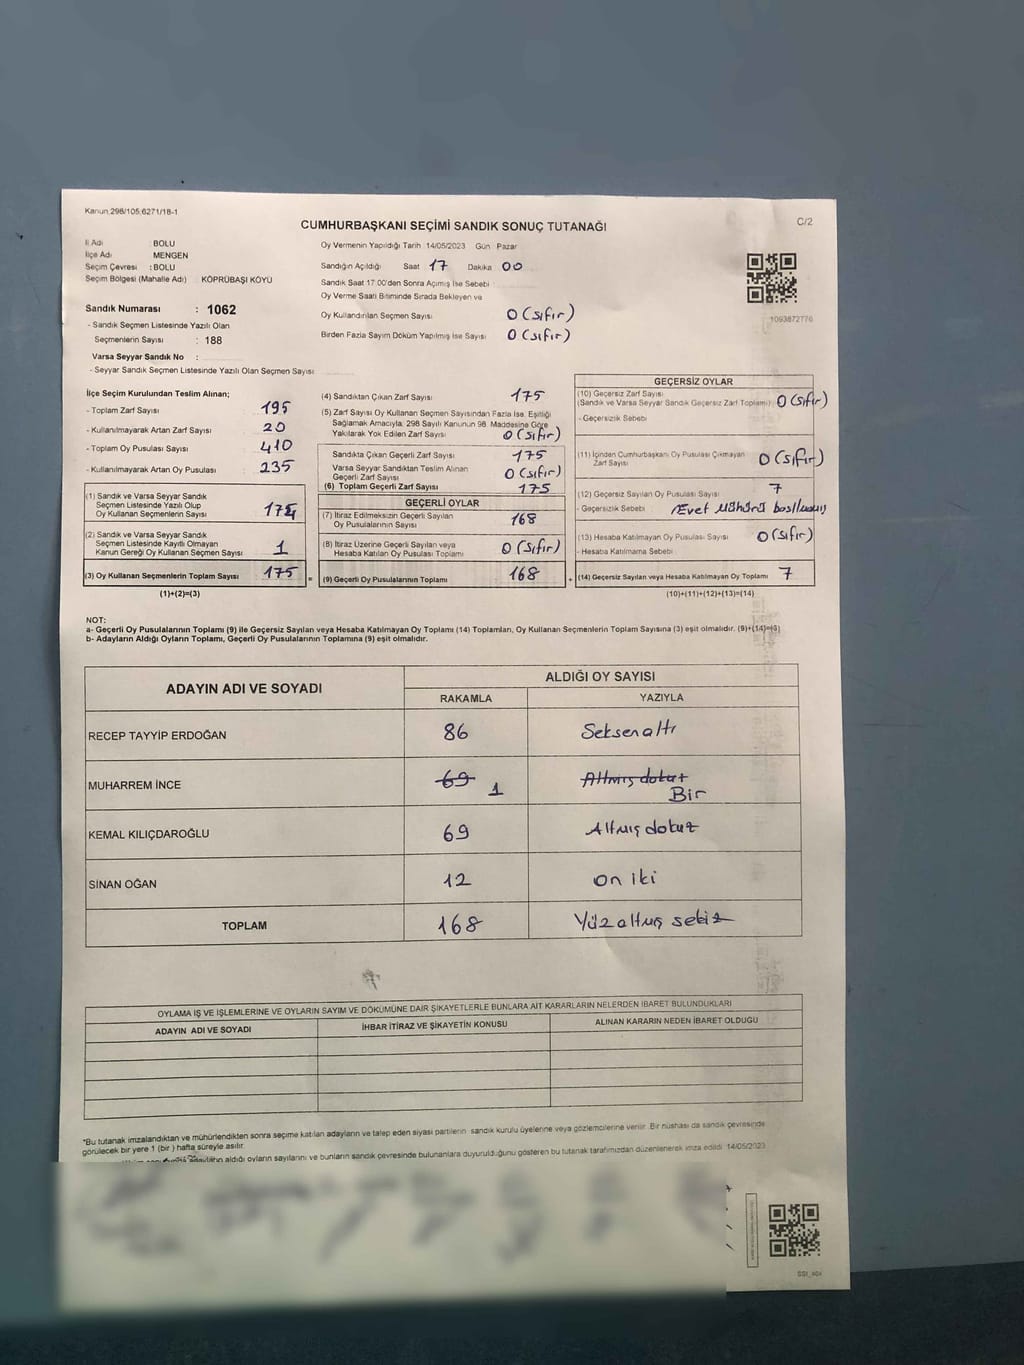 Kanun:298/105;6271/18-1
C/2
CUMHURBAŞKANI SEÇİMİ SANDIK SONUÇ TUTANAĞI
İl Adı : BOLU
İlçe Adı : MENGEN
Seçim Çevresi : BOLU
Seçim Bölgesi (Mahalle Adı) : KÖPRÜBAŞI KÖYÜ
Sandık Numarası : 1062
- Sandık Seçmen Listesinde Yazılı Olan
Seçmenlerin Sayısı : 188
Varsa Seyyar Sandık No :
- Seyyar Sandık Seçmen Listesinde Yazılı Olan Seçmen Sayısı :
Oy Vermenin Yapıldığı Tarih 14/05/2023 Gün Pazar
Sandığın Açıldığı Saat 17 Dakika 00
Sandık Saat 17.00'den Sonra Açımış İse Sebebi
Oy Verme Saati Bitiminde Sırada Bekleyen ve
Oy Kullandırılan Seçmen Sayısı 0 (sıfır)
Birden Fazla Sayım Döküm Yapılmış İse Sayısı 0 (sıfır)
1093872776
İlçe Seçim Kurulundan Teslim Alınan;
- Toplam Zarf Sayısı 195
- Kullanılmayarak Artan Zarf Sayısı 20
- Toplam Oy Pusulası Sayısı 410
- Kullanılmayarak Artan Oy Pusulası 235
(1) Sandık ve Varsa Seyyar Sandık
Seçmen Listesinde Yazılı Olup
Oy Kullanan Seçmenlerin Sayısı 174
(2) Sandık ve Varsa Seyyar Sandık
Seçmen Listesinde Kayıtlı Olmayan
Kanun Gereği Oy Kullanan Seçmen Sayısı 1
(3) Oy Kullanan Seçmenlerin Toplam Sayısı 175 =
(1)+(2)=(3)
(4) Sandıktan Çıkan Zarf Sayısı 175
(5) Zarf Sayısı Oy Kullanan Seçmen Sayısından Fazla İse, Eşitliği
Sağlamak Amacıyla, 298 Sayılı Kanunun 98. Maddesine Göre
Yakılarak Yok Edilen Zarf Sayısı 0 (sıfır)
Sandıkta Çıkan Geçerli Zarf Sayısı 175
Varsa Seyyar Sandıktan Teslim Alınan
Geçerli Zarf Sayısı 0 (sıfır)
(6) Toplam Geçerli Zarf Sayısı 175
GEÇERLİ OYLAR
(7) İtiraz Edilmeksizin Geçerli Sayılan
Oy Pusulalarının Sayısı 168
(8) İtiraz Üzerine Geçerli Sayılan veya
Hesaba Katılan Oy Pusulası Toplamı 0 (sıfır)
(9) Geçerli Oy Pusulalarının Toplamı 168 +
GEÇERSİZ OYLAR
(10) Geçersiz Zarf Sayısı
(Sandık ve Varsa Seyyar Sandık Geçersiz Zarf Toplamı) 0 (sıfır)
- Geçersizlik Sebebi
(11) İçinden Cumhurbaşkanı Oy Pusulası Çıkmayan
Zarf Sayısı 0 (sıfır)
(12) Geçersiz Sayılan Oy Pusulası Sayısı 7
- Geçersizlik Sebebi Evet Mührü
(13) Hesaba Katılmayan Oy Pusulası Sayısı 0 (sıfır)
- Hesaba Katılmama Sebebi
(14) Geçersiz Sayılan veya Hesaba Katılmayan Oy Toplamı 7
(10)+(11)+(12)+(13)=(14)
NOT:
a- Geçerli Oy Pusulalarının Toplamı (9) ile Geçersiz Sayılan veya Hesaba Katılmayan Oy Toplamı (14) Toplamları, Oy Kullanan Seçmenlerin Toplam Sayısına (3) eşit olmalıdır. (9)+(14)=(3)
b- Adayların Aldığı Oyların Toplamı, Geçerli Oy Pusulalarının Toplamına (9) eşit olmalıdır.
ADAYIN ADI VE SOYADI ALDIĞI OY SAYISI
RAKAMLA YAZIYLA
RECEP TAYYİP ERDOĞAN 86 Seksenaltı
MUHARREM İNCE 69 1 Altmışdokuz
Bir
KEMAL KILIÇDAROĞLU 69 Altmışdokuz
SİNAN OĞAN 12 on iki
TOPLAM 168 Yüzaltmış sekiz
OYLAMA İŞ VE İŞLEMLERİNE VE OYLARIN SAYIM VE DÖKÜMÜNE DAİR ŞİKAYETLERLE BUNLARA AİT KARARLARIN NELERDEN İBARET BULUNDUKLARI
ADAYIN ADI VE SOYADI İHBAR İTİRAZ VE ŞİKAYETİN KONUSU ALINAN KARARIN NEDEN İBARET OLDUĞU
*Bu tutanak imzalandıktan ve mühürlendikten sonra seçime katılan adayların ve talep eden siyasi partilerin sandık kurulu üyelerine veya gözlemcilerine verilir. Bir nüshası da sandık çevresinde
görülecek bir yere 1 (bir ) hafta süreyle asılır.
aldığı oyların sayılarını ve bunların sandık çevresinde bulunanlara duyurulduğunu gösteren bu tutanak tarafımızdan düzenlenerek imza edildi. 14/05/2023